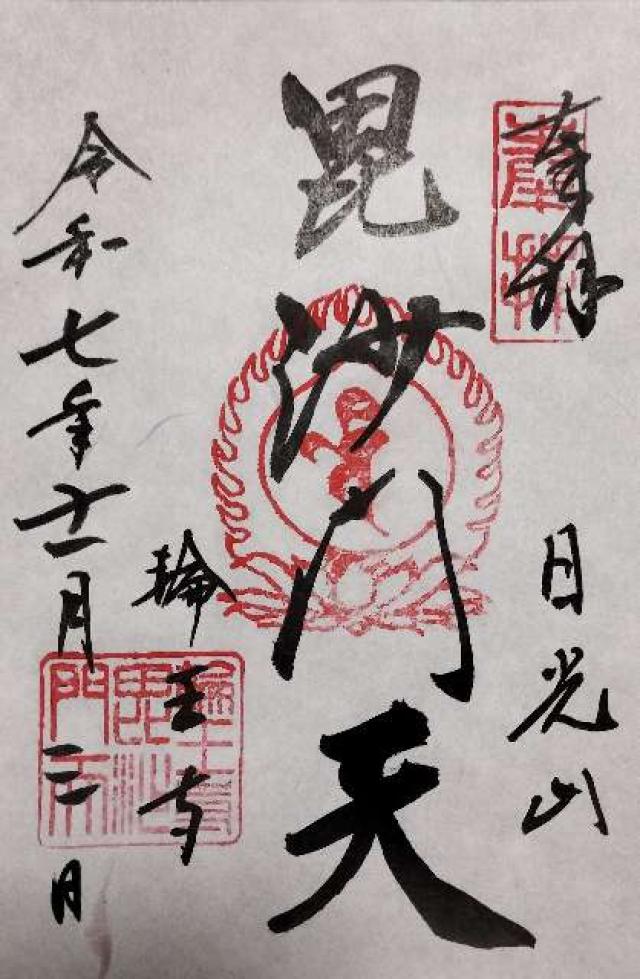 奉拝
奉拝
日光山
毘沙門天
輪王寺
輪王寺
毘沙
門天
令和七年十一月三日